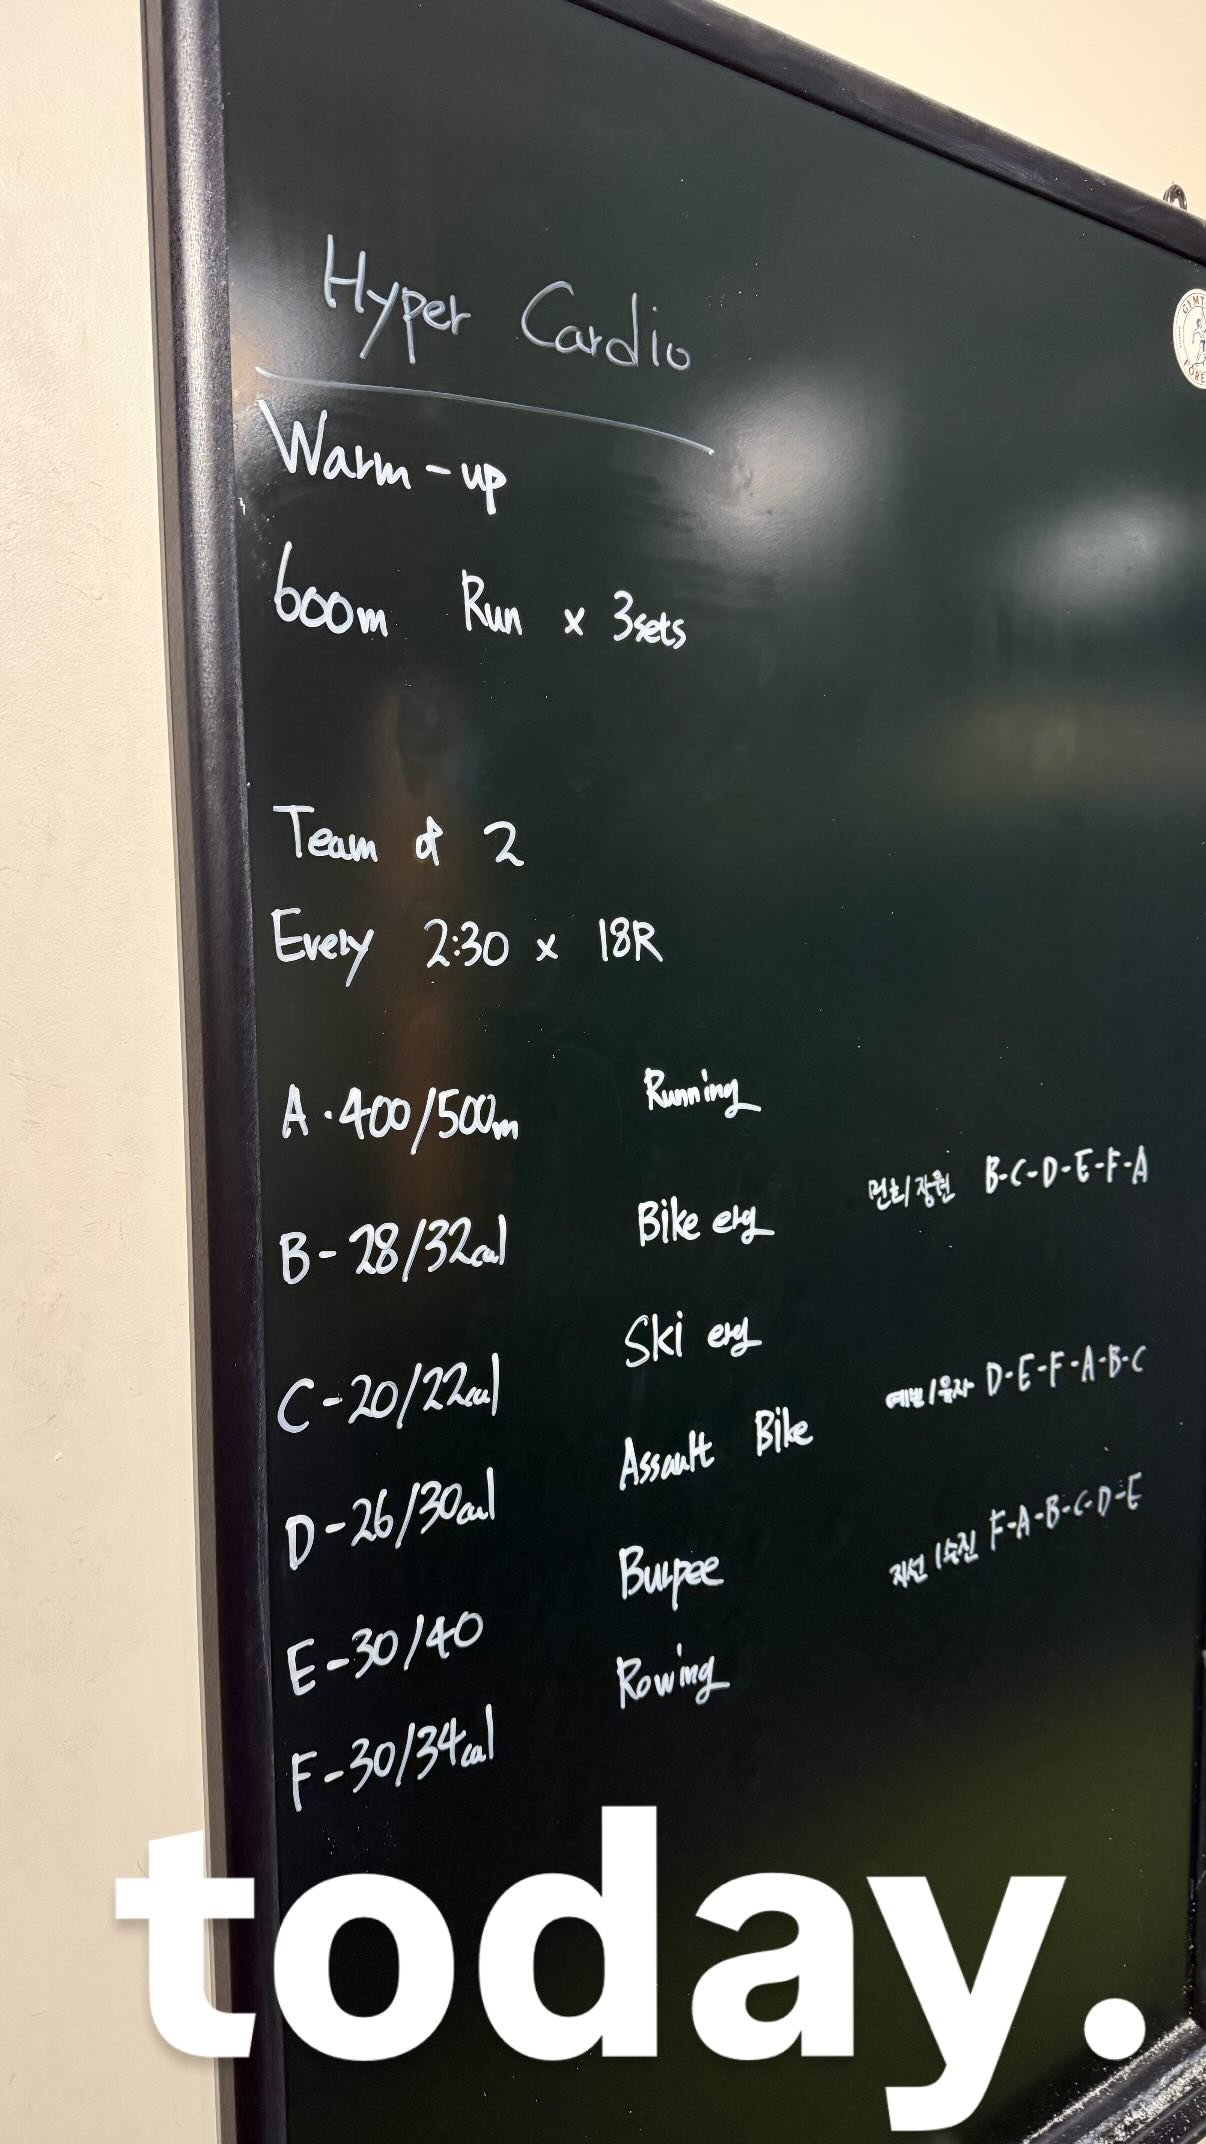 Hyper Cardio
Warm-up
600m Run x 3sets
Team of 2
Every 2:30 x 18R
A·400/500m Running
B-28/32cal Bike erg
B-C-D-E-F-A
C-20/22cal Ski erg
D-26/30cal Assault Bike
D-E-F-A-B-C
E-30/40 Burpee
지선/수진 F-A-B-C-D-E
F-30/34cal Rowing
today.